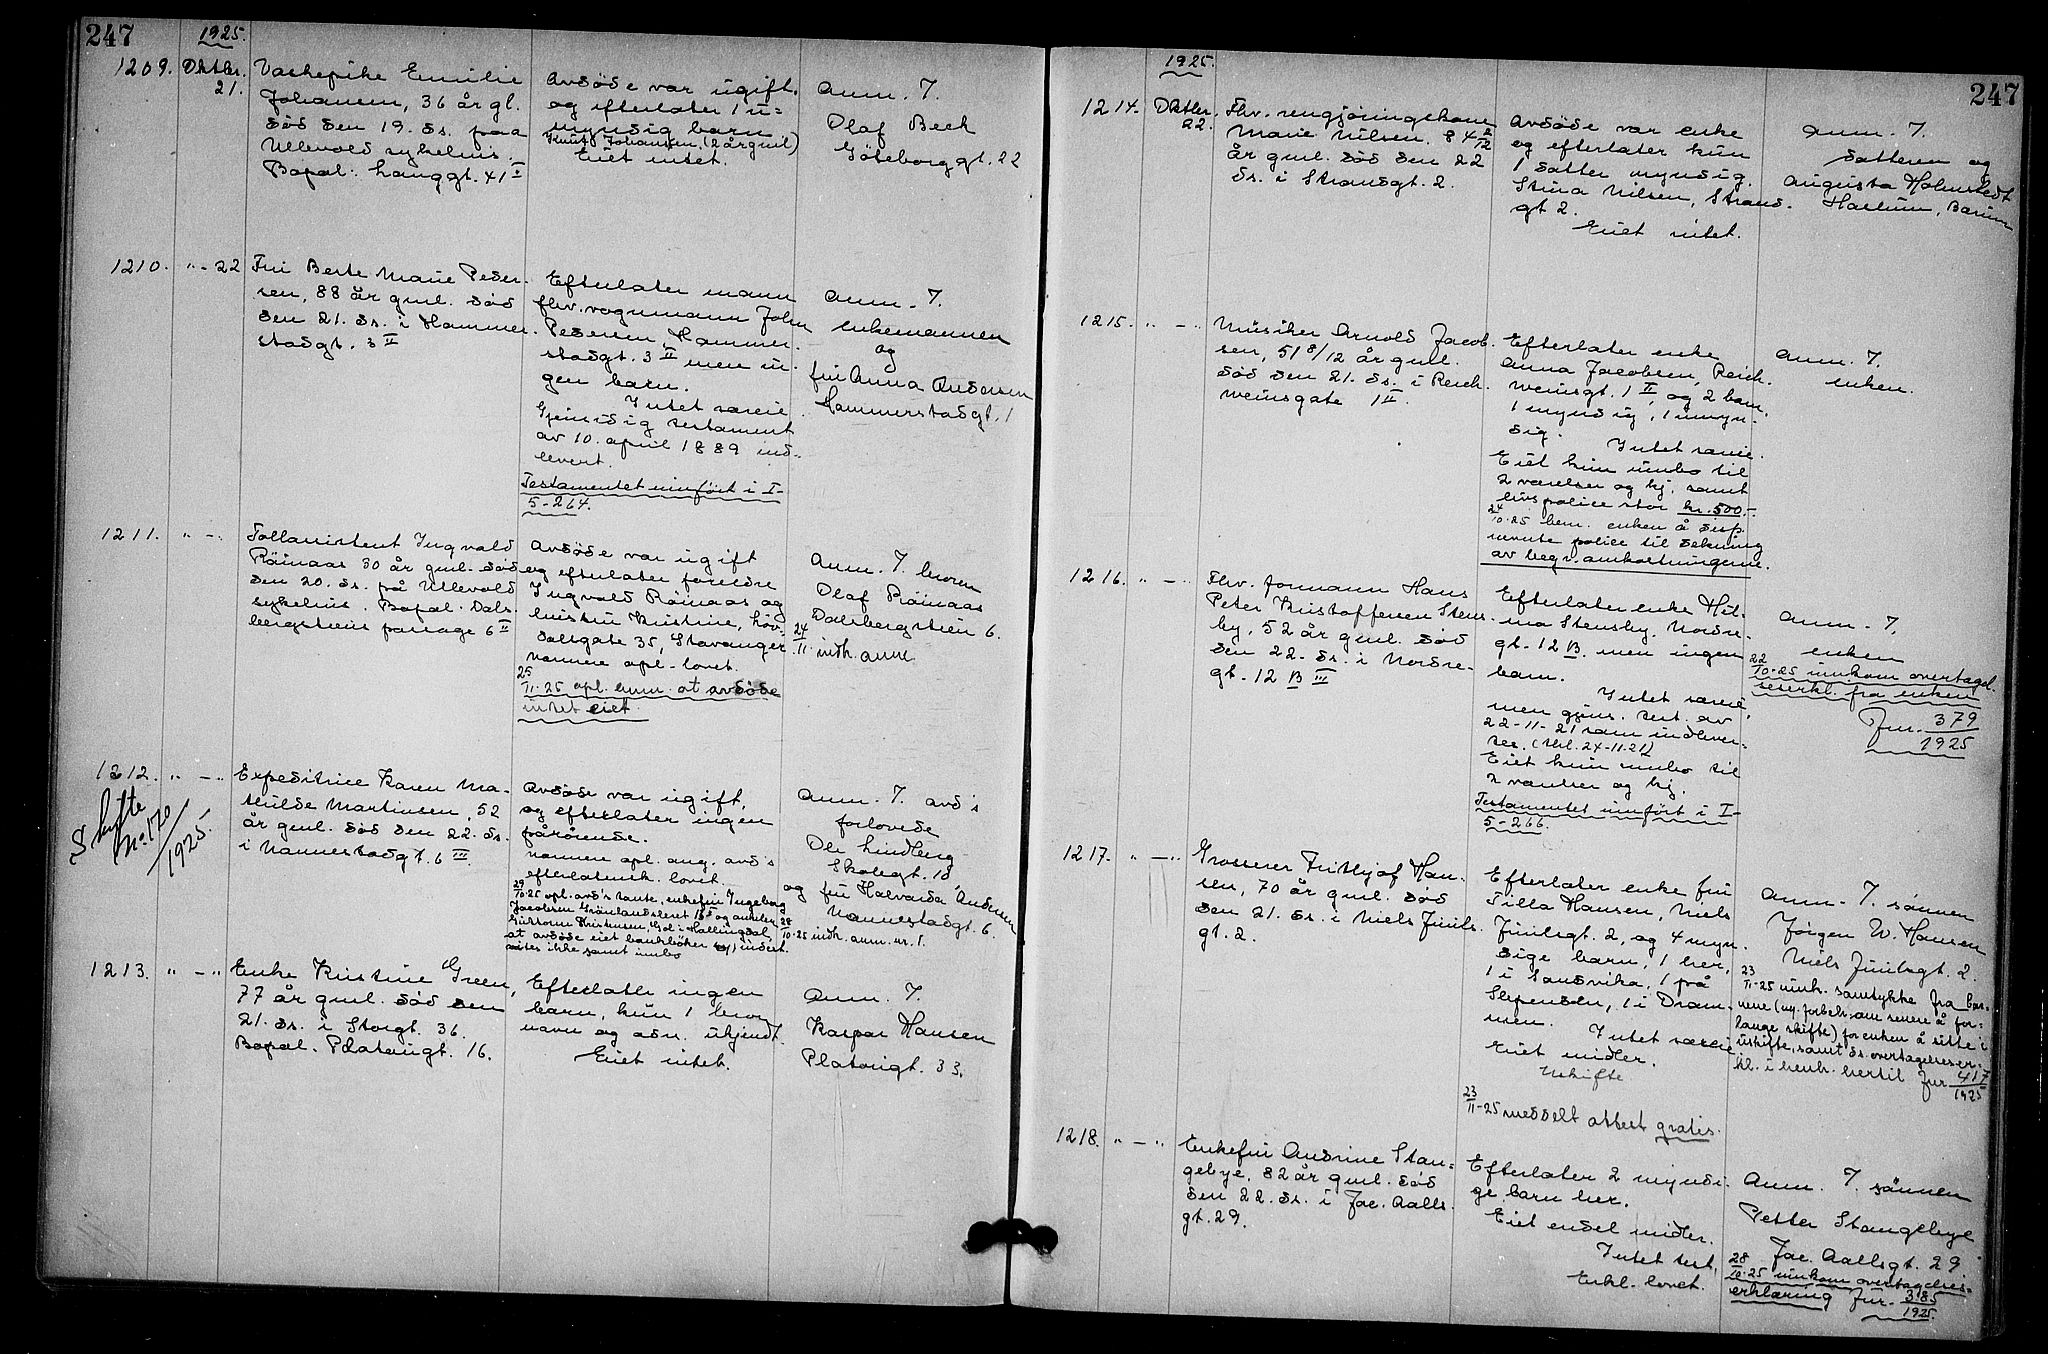 247
1925.
1209. Oktbr. 21.
Vaskepike Emilie
Johansen, 36 år gl.
död den 19. ds. paa
Ullevold sykehus.
Bopæl: Langgt. 41 I
Avdöde var ugift,
og efterlater 1 u-
myndig barn
Knut Johansen, (2 år gml)
Eiet intet.
Anm. 7.
Olaf Beck
Göteborggt. 22
1210. " - 22
Fru Berte Marie Peder-
sen, 88 år gml. död
den 21. ds. i Hammer-
stadgt. 3 II
Efterlater mann
fhv. vognmann John
Pedersen, Hammer-
stadgt. 3 II men in-
gen barn.
Intet særeie.
Gjensidig testament
av 10. april 1889 ind-
levert.
Testamentet innfört i I-
5-264.
Anm. 7.
enkemannen
og
fru Anna Andersen
Hammerstadgt. 1
1211. " - "
Tollassistent Ingvald
Röinaas 30 år gml. död
den 20. ds. på Ullevold
sykehus. Bopæl. Dals-
bergstiens passage 6 II
Avdöde var ugift
og efterlater foreldre
Ingvald Röinaas og
hustru Kristine, Höv-
dallsgate 35, Stavanger
Nærmere opl. lovet.
25/11-25 opl. anm. at avdöde
intet eiet
Anm. 7. broren
Olaf Röinaas
Dalsbergstien 6.
24/11 indk. anm.
1212. " - "
Skifte
No. 170/1925.
Expeditrice Karen Ma-
thilde Martinsen, 52
år gml. död den 22. ds.
i Nannestadgt. 6 III.
Avdöde var ugift,
og efterlater ingen
pårörende.
Nærmere opl. ang. avd's
efterlatensk. lovet.
29/10-25 opl. avd's tante, enkefru Ingeborg
Jacobsen Grönlandsleret 18 I og onkelen
Kristensen, Gol i Hallingdal,
at avdöde eiet bankböker indest.
vites ikke samt innbo
Anm. 7. avd's
forlovede
Ole Lindberg
Skolegt. 10,
og fru Halvarda Andersen
Nannestadgt. 6.
28/10-25 indk. anm. nr. 1.
1213. " - "
Enke Kristine Green,
77 år gml. död den
21. ds. i Storgt. 36.
Bopæl. Platougt. 16.
Efterlatte ingen
barn, kun 1 bror
navn og adr. ukjendt.
Eiet intet.
Anm. 7.
Kaspar Hansen
Platougt. 33.
1925.
247
1214. Oktbr. 22.
Fhv. rengjøringskone
Marie Nilsen. 84 8/12
år gml. död den 22
ds. i Strandgt. 2.
Avdöde var enke
og efterlater kun
1 datter myndig.
Stina Nilsen, Strand-
gt 2.
Eiet intet.
Anm. 7.
datteren og
Augusta Holmstedt
Haslum, Bærum
1215. " - "
Musiker Arnold Jacob-
sen, 51 8/12 år gml.
död den 21. ds. i Reich-
weinsgate 1 II.
Efterlater enke
Anna Jacobsen, Reich-
weinsgt. 1 II og 2 barn,
1 myndig, 1 umyn-
dig.
Intet særeie.
Eiet kun innbo til
2 værelser og kj. samt
livspolice stor kr. 500.-
24/10-25 bem. enken å disp.
nevnte police til dekning
av begr. omkostningerne.
Anm. 7.
enken.
1216. " - "
Fhv. formann Hans
Peter Kristoffersen Stens-
by, 52 år gml. död
den 22. ds. i Nordre-
gt. 12 B III
Efterlater enke Hil-
ma Stensby. Nordre-
gt. 12 B. men ingen
barn.
Intet særeie,
men gjens. test. av
22-11-21 som indlever-
tes. (Vel. 24-11-21)
Eiet kun innbo til
2 værelser og kj.
Testamentet innfört i I-
5-266.
Anm. 7.
enken
22/10-25 innkom overtagel-
seserkl. fra enken
Jnr. 379/1925
1217. " - "
Grosserer Frithjof Han-
sen, 70 år gml. död
den 21. ds. i Niels Juels-
gt. 2.
Efterlater enke fru
Tilla Hansen, Niels
Juelsgt. 2, og 4 myn-
dige barn, 1 her,
1 i Sandvika, 1 på
Slependen, 1 i Dram-
men.
Intet særeie
Eiet midler.
Uskifte
23/11-25 meddelt attest gratis.
Anm. 7. sönnen
Jörgen W. Hansen
Niels Juelsgt. 2.
23/11-25 innk. samtykke fra bar-
nene (m. forbeh. om senere å for-
lange skifte) for enken å sitte i
uskifte, samt ds. overtagelseser-
kl. i henh. hertil Jnr. 417/1925
1218. " - "
Enkefru Andrine Stan-
gebye, 82 år gml. död
den 22. ds. i Jac. Aalls
gt. 29.
Efterlater 2 myndi-
ge barn her.
Eiet endel midler.
Intet test.
Erkl. lovet.
Anm. 7. sönnen
Petter Stangebye
Jac. Aallsgt. 29.
28/10-25 innkom overtagelses-
erklæring Jnr. 385/1925.